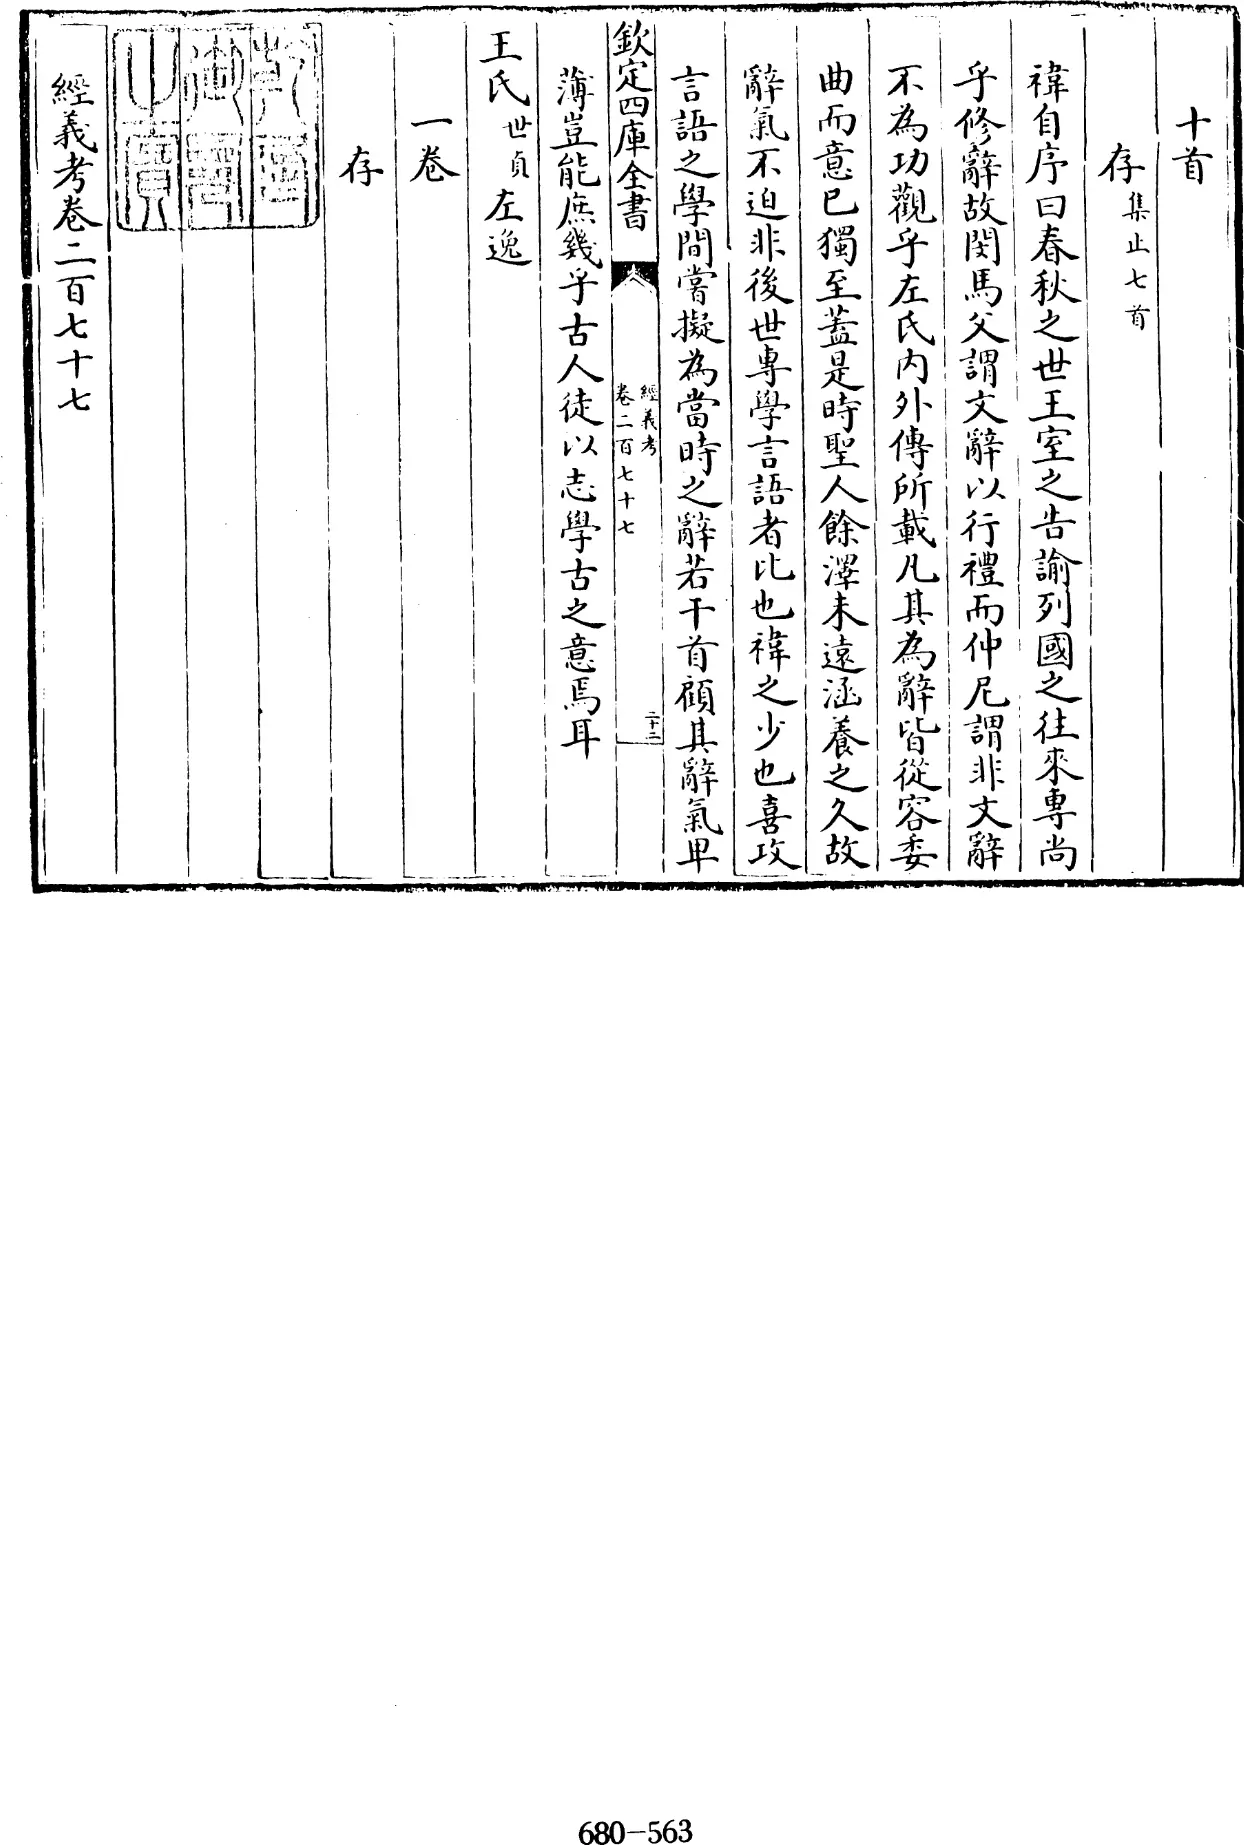 十首
存集止七首
禕自序曰春秋之世王室之告諭列國之往來專尚
乎修辭故閔馬父謂文辭以行禮而仲尼謂非文辭
不為功觀乎左氏内外傳所載凡其為辭皆從容委
曲而意已獨至蓋是時聖人餘澤未遠涵養之久故
辭氣不迫非後世專學言語者比也禕之少也喜攻
言語之學間嘗擬為當時之辭若干首顧其辭氣卑
欽定四庫全書
經義考
卷二百七十七
二十二
薄豈能庶幾乎古人徒以志學古之意焉耳
王氏世貞左逸
一卷
存
乾隆御覽之寶
經義考卷二百七十七
680-563